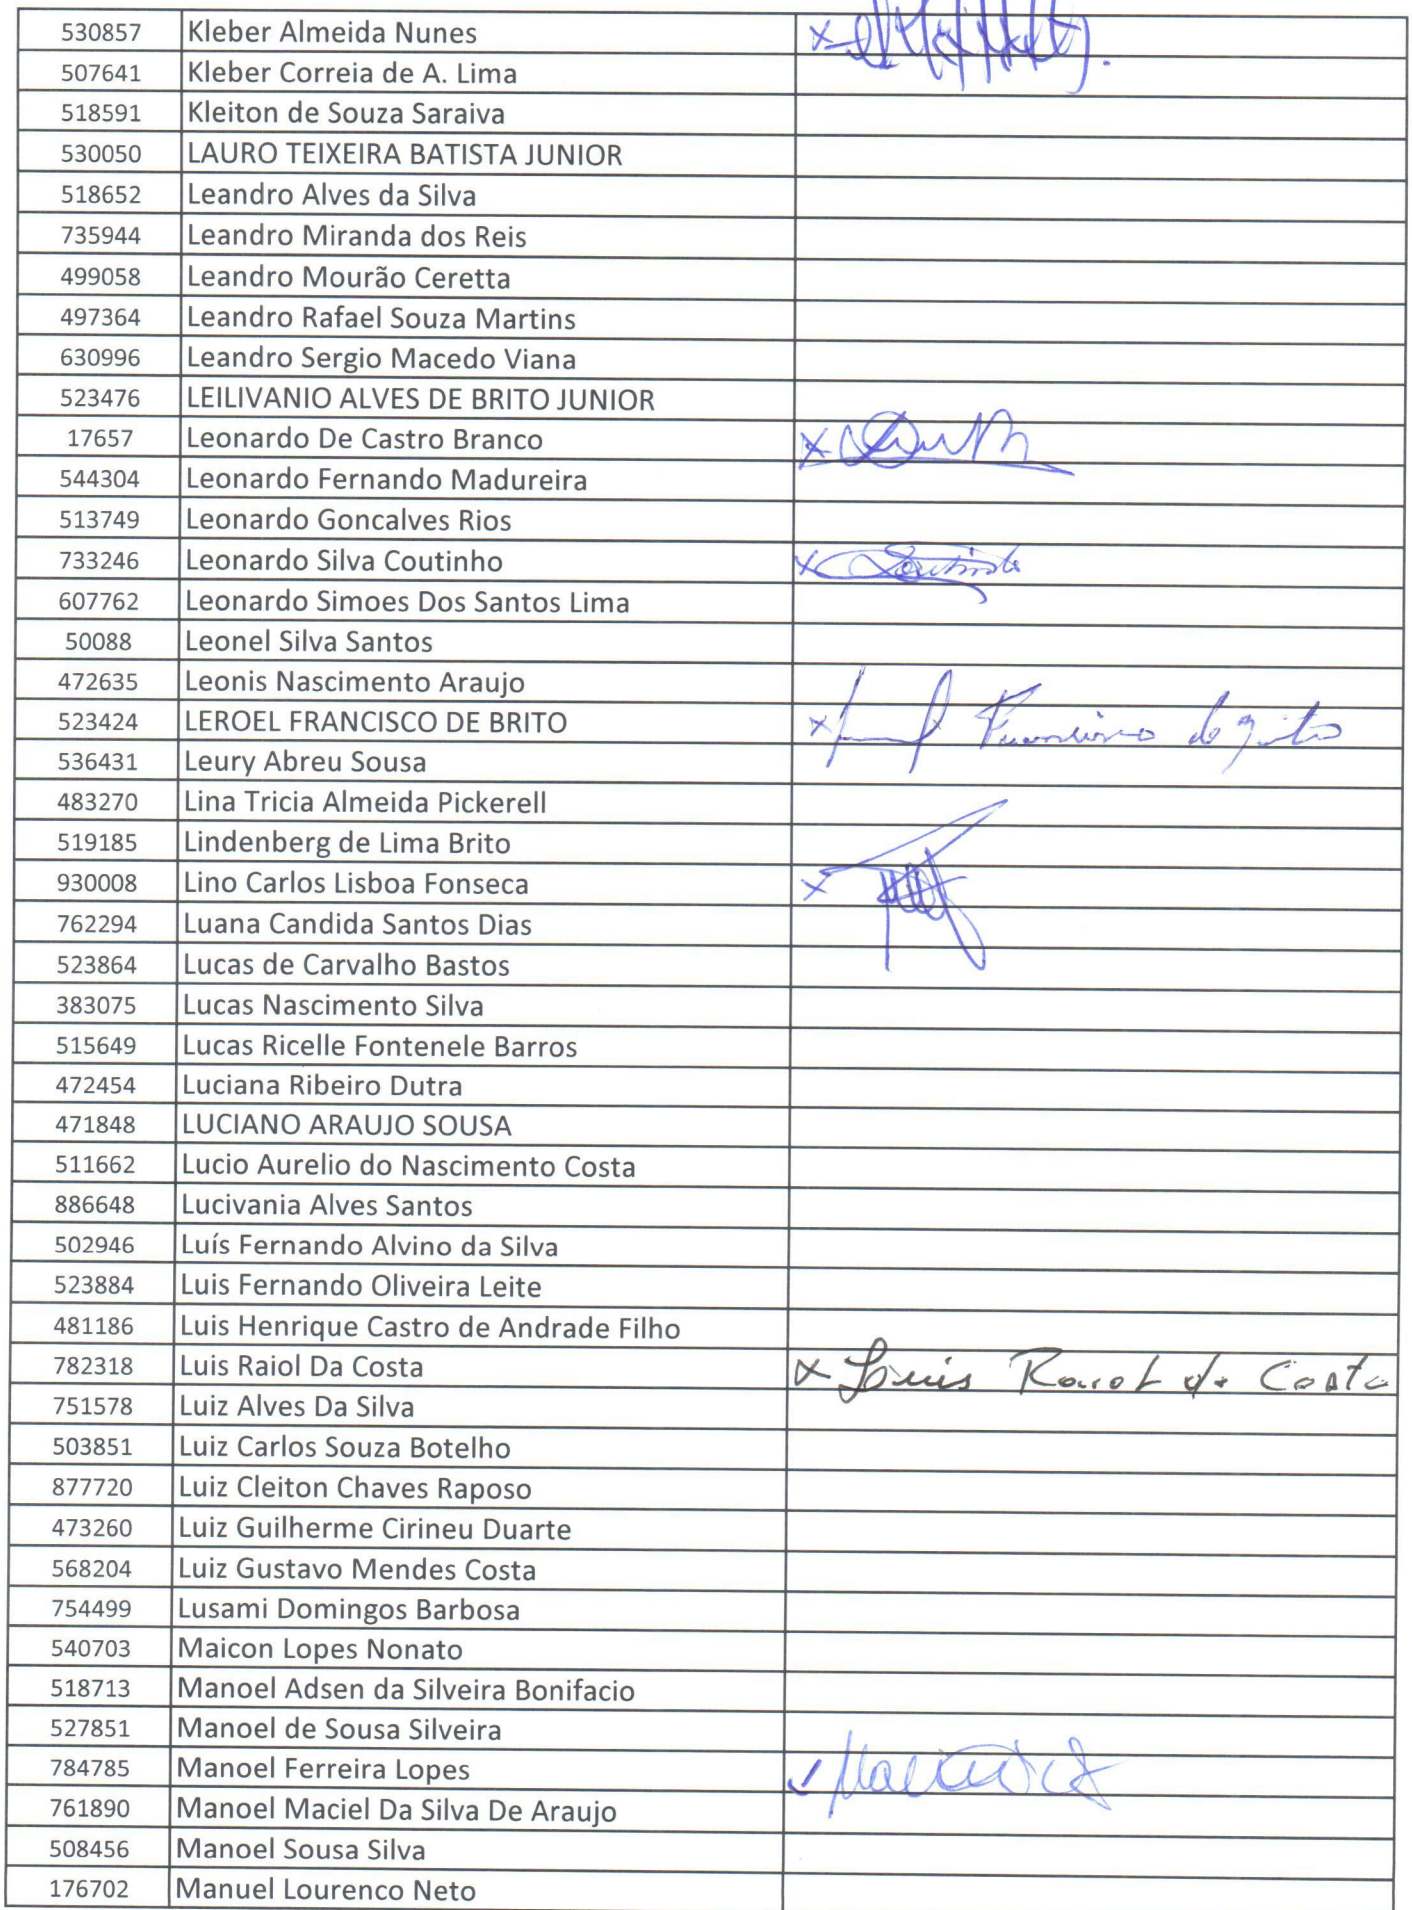 530857 Kleber Almeida Nunes x
507641 Kleber Correia de A. Lima
518591 Kleiton de Souza Saraiva
530050 LAURO TEIXEIRA BATISTA JUNIOR
518652 Leandro Alves da Silva
735944 Leandro Miranda dos Reis
499058 Leandro Mourão Ceretta
497364 Leandro Rafael Souza Martins
630996 Leandro Sergio Macedo Viana
523476 LEILIVANIO ALVES DE BRITO JUNIOR
17657 Leonardo De Castro Branco x
544304 Leonardo Fernando Madureira
513749 Leonardo Goncalves Rios
733246 Leonardo Silva Coutinho x Coutinho
607762 Leonardo Simoes Dos Santos Lima
50088 Leonel Silva Santos
472635 Leonis Nascimento Araujo
523424 LEROEL FRANCISCO DE BRITO x Francisco de Brito
536431 Leury Abreu Sousa
483270 Lina Tricia Almeida Pickerell
519185 Lindenberg de Lima Brito
930008 Lino Carlos Lisboa Fonseca x
762294 Luana Candida Santos Dias
523864 Lucas de Carvalho Bastos
383075 Lucas Nascimento Silva
515649 Lucas Ricelle Fontenele Barros
472454 Luciana Ribeiro Dutra
471848 LUCIANO ARAUJO SOUSA
511662 Lucio Aurelio do Nascimento Costa
886648 Lucivania Alves Santos
502946 Luís Fernando Alvino da Silva
523884 Luis Fernando Oliveira Leite
481186 Luis Henrique Castro de Andrade Filho
782318 Luis Raiol Da Costa x Luis Raiol da Costa
751578 Luiz Alves Da Silva
503851 Luiz Carlos Souza Botelho
877720 Luiz Cleiton Chaves Raposo
473260 Luiz Guilherme Cirineu Duarte
568204 Luiz Gustavo Mendes Costa
754499 Lusami Domingos Barbosa
540703 Maicon Lopes Nonato
518713 Manoel Adsen da Silveira Bonifacio
527851 Manoel de Sousa Silveira
784785 Manoel Ferreira Lopes
761890 Manoel Maciel Da Silva De Araujo
508456 Manoel Sousa Silva
176702 Manuel Lourenco Neto